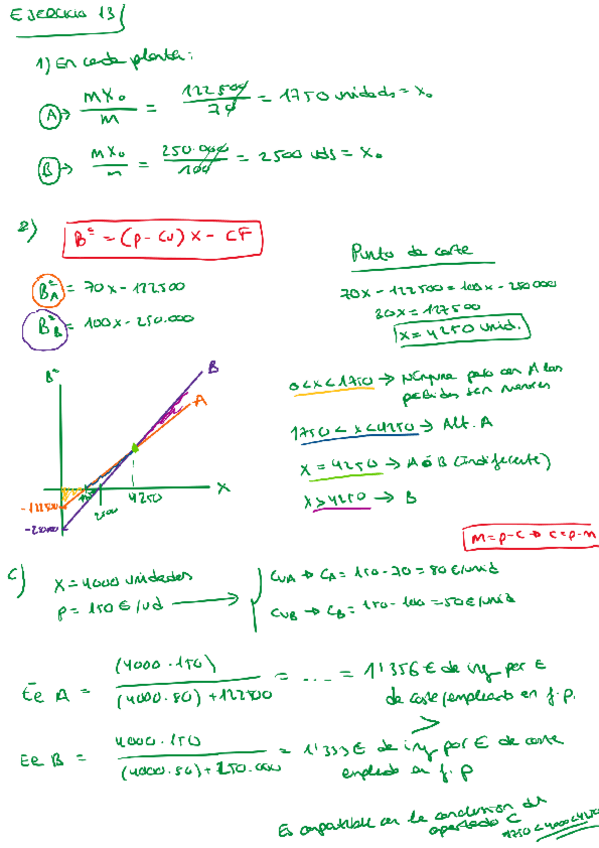 EJERCICIO 13
1) En cada planta:
A → mx₀ / m = 122.500 / 70 = 1750 unidads = x₀
B → mx₀ / m = 250.000 / 100 = 2500 uds = x₀
2)
Bº = (p - cu) x - CF
BºA = 70x - 122.500
BºB = 100x - 250.000
Punto de corte
70x - 122500 = 100x - 250000
30x = 127500
x = 4250 unid.
Bº
B
A
x
-122500
2500
4250
0 < x < 1750 → Ninguna pero con A las
perdidas son menores
1750 < x < 4250 → Alt. A
x = 4250 → A ó B (indiferente)
x > 4250 → B
m = p - c → c = p - m
c)
x = 4000 unidades
p = 150 € / ud
CUA → CA = 150 - 70 = 80 €/unid
CUB → CB = 150 - 100 = 50 €/unid
Ee A = (4000 · 150) / (4000 · 80) + 122500 = ... = 1'356 € de ing por €
de coste empleado en f. p.
>
Ee B = 4000 · 150 / (4000 · 50) + 250.000 = 1'333 € de ing por € de coste
empleado en f. p
Es compatible con la conclusion del
apartado C
1750 < 4000 < 4250